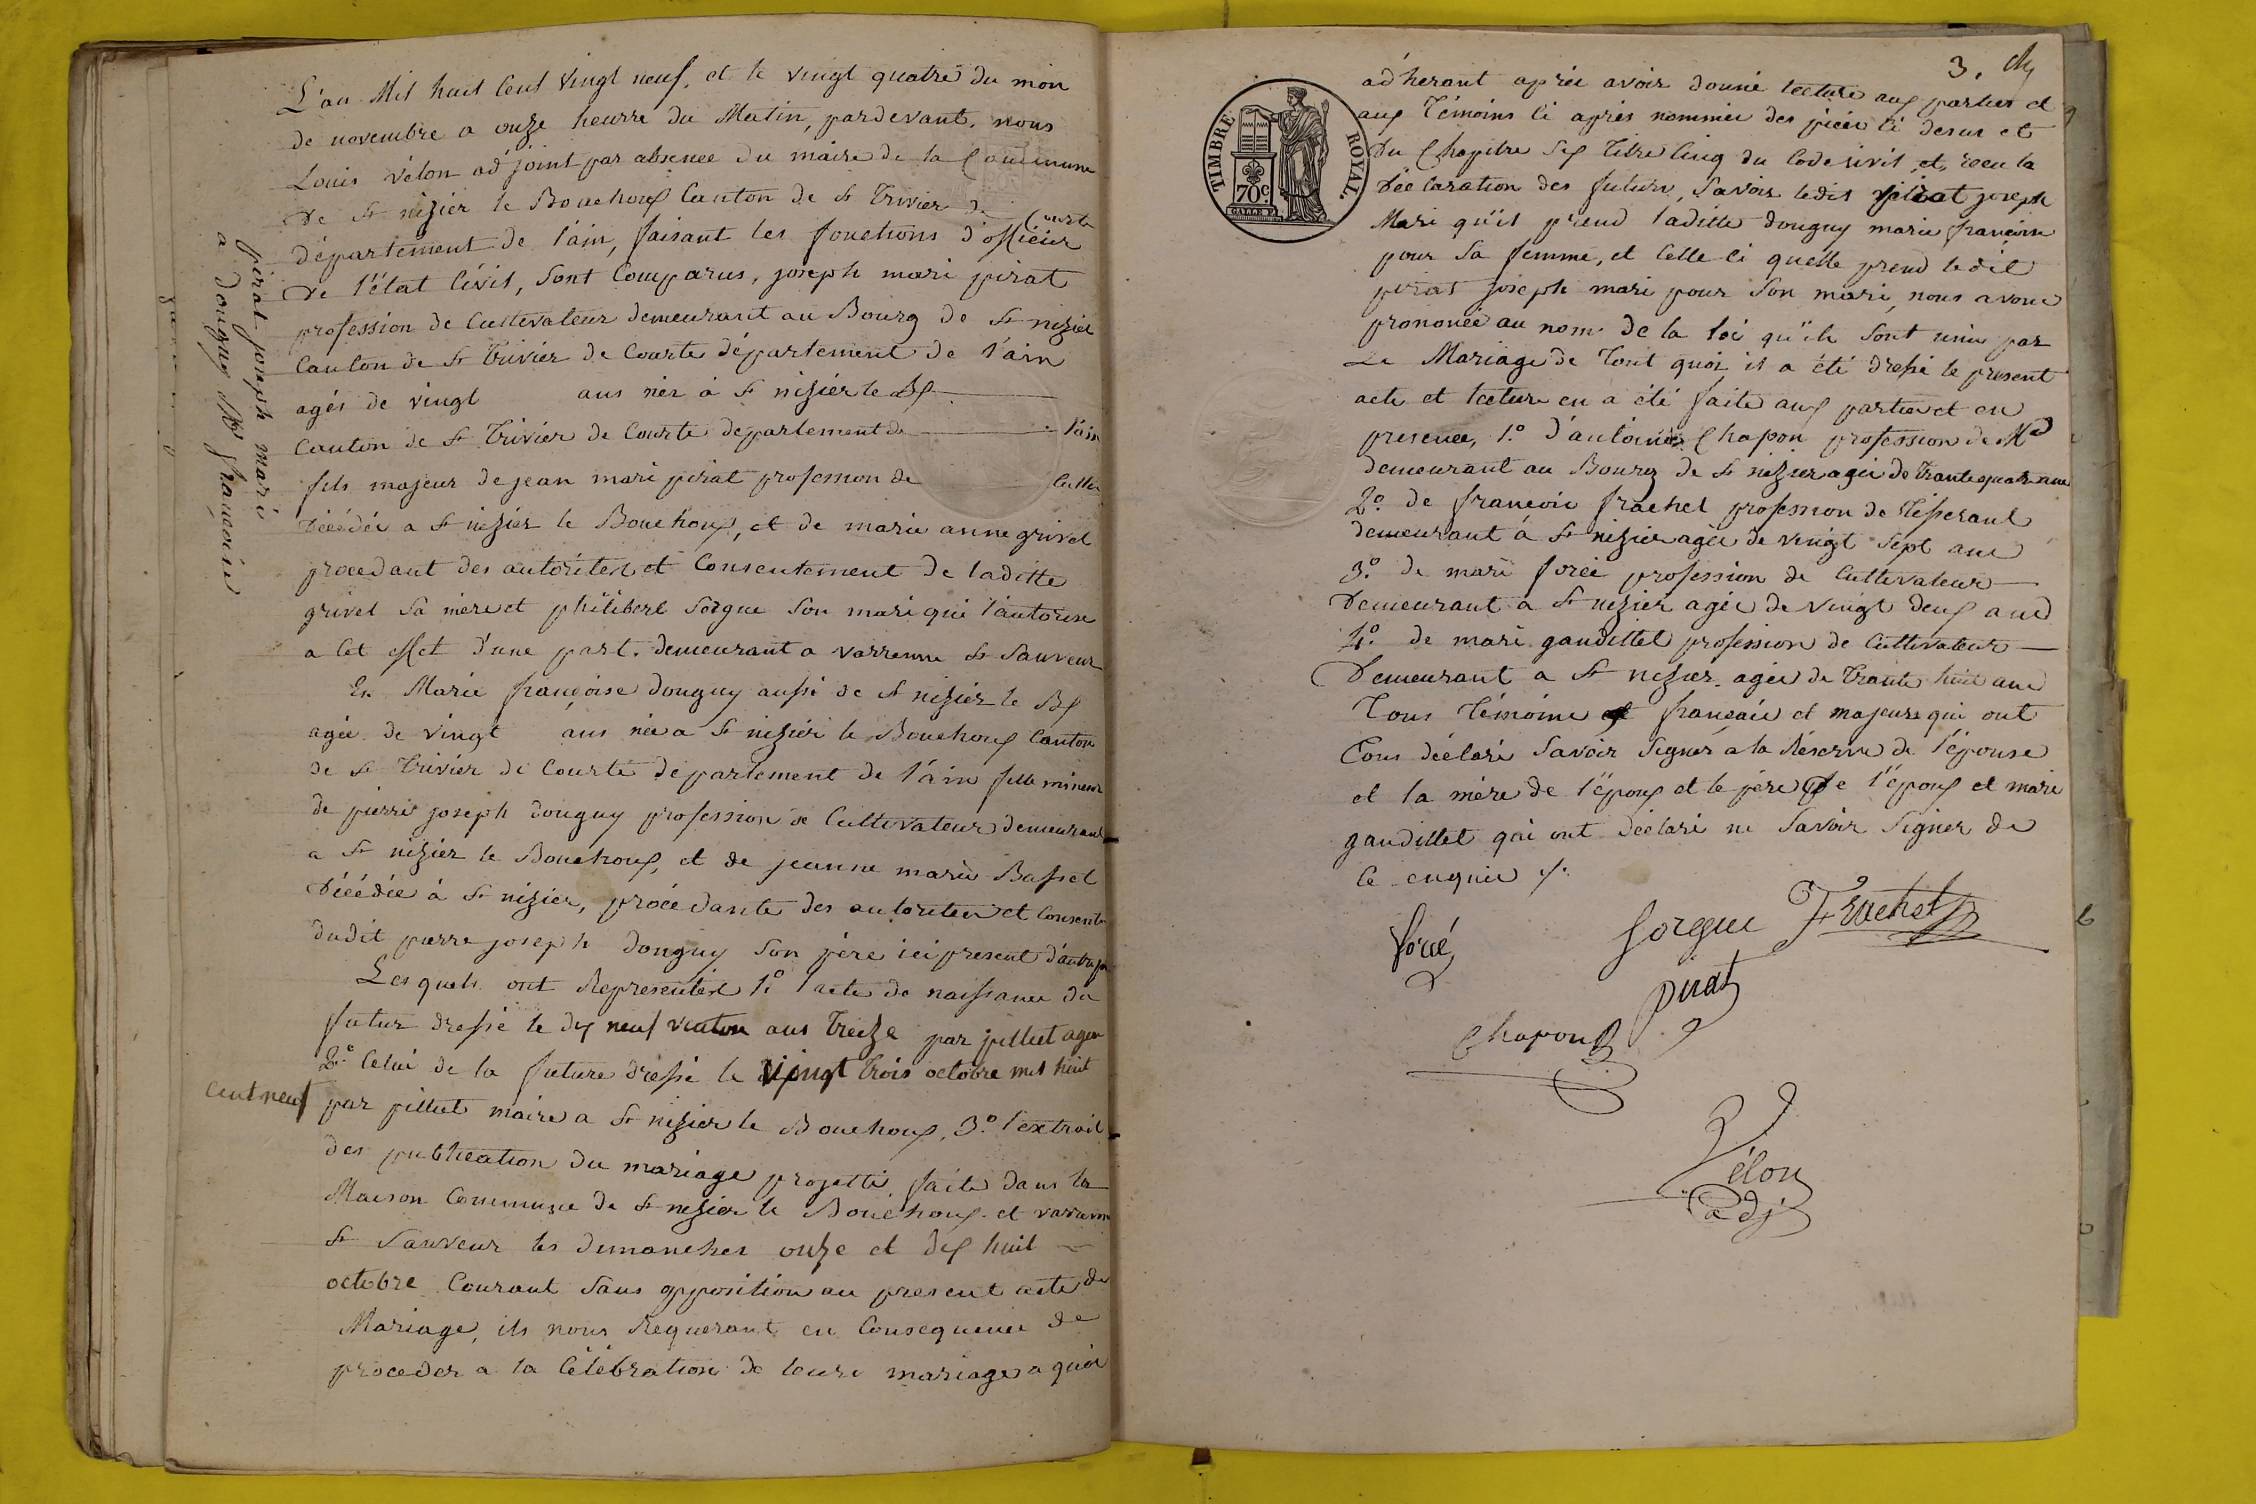 pirat joseph mari
a donguy Mie françoise
L'an Mil huit Cent vingt neuf, et le vingt quatre du moi
de novembre a onze heurre du Matin, pardevant, nous
Louis vélon adjoint par absence du maire de la Commune
De St nizier le Bouchoux Canton de St Trivier de Courte
département de l'ain, faisant les fonctions d'officier
De l'état Civil, sont Comparus, joseph mari pirat
profession de Cultivateur demeurant au Bourg de St nizier
Canton de St Trivier de Courte département de l'ain
agés de vingt ans néz à St nizier le Bx
Canton de St Trivier de Courte département de l'ain
fils majeur de jean mari pirat profession de Culti
Décédée a St nizier le Bouchoux, et de marie anne grivel
procedant des autoritex et Consentement de laditte
grivel sa mère et philibert sorgue son mari qui l'autorise
a Cet effet d'une part. demeurant a varrenne St Sauveur
Et Marie françoise donguy aussi de St nizier le Bx
agée de vingt ans née a St nizier le Bouchoux Canton
de St Trivier de Courte département de l'ain fille mineur
de pierre joseph donguy profession de Cultivateur demeurant
a St nizier le Bouchoux, et de jeanne marie Bassel
Décédée à St nizier, procédante des autoritee et Consent
dudit pierre joseph donguy son père ici present d'autre p
Lesquels ont Representex 1o l'acte de naissance du
futur dressé le dix neuf venton ans treize par pillut agen
2o Celui de la future dressé le vingt trois octobre mil huit
Cent neuf
par pillut maire a St nizier le Bouchoux, 3o l'extrait
des publication du mariage projetté faite dans la
Maison Commune de St nezier le Bouchoux et varrenne
St Sauveur les dimanches onze et dix huit
octobre Courant sans opposition au present acte de
Mariage, ils nous Requerant en Consequence de
proceder a la Célébration de leurs mariage a quoi
3.
TIMBRE ROYAL.
70c.
adherant aprée avoir donné lecture aux parties et
aux Témoins Ci après nommée des pièce Ci desus et
Du Chapitre six titre Cinq du Code civil et recu la
Déclaration des futurs, savoir ledit pirat joseph
Mari qu'il prend laditte donguy marie françoise
pour sa femme, et Celle Ci quelle prend ledit
pirat joseph mari pour son mari, nous avons
prononcé au nom de la loi qu'ils sont unie par
Le Mariage de tout quoi il a été dressé le present
acte et lecture en a été faite aux partie et en
presence, 1o d'antoine Chapon profession de Md
demeurant au Bourg de St nizier agée de Trante quatre ans
2o de françoie frachet profession de Tisserant
demeurant à St nizier agée de vingt sept ans
3o de mari forée profession de Cultivateur
Demeurant a St nizier agée de vingt deux ans
4o de mari gandillet profession de Cultivateur
Demeurant a St nizier agée de Trante huit ans
Tous Témoins et françaie et majeurs qui ont
Tous déclaré savoir signer a la Réserve de l'épouse
et la mère de l'époux et le père de l'époux et mari
gandillet qui ont déclaré ne savoir signer de
Ce enquie
foreé
sorgue
Frachet
pirat
Chapon
Vélon
adj